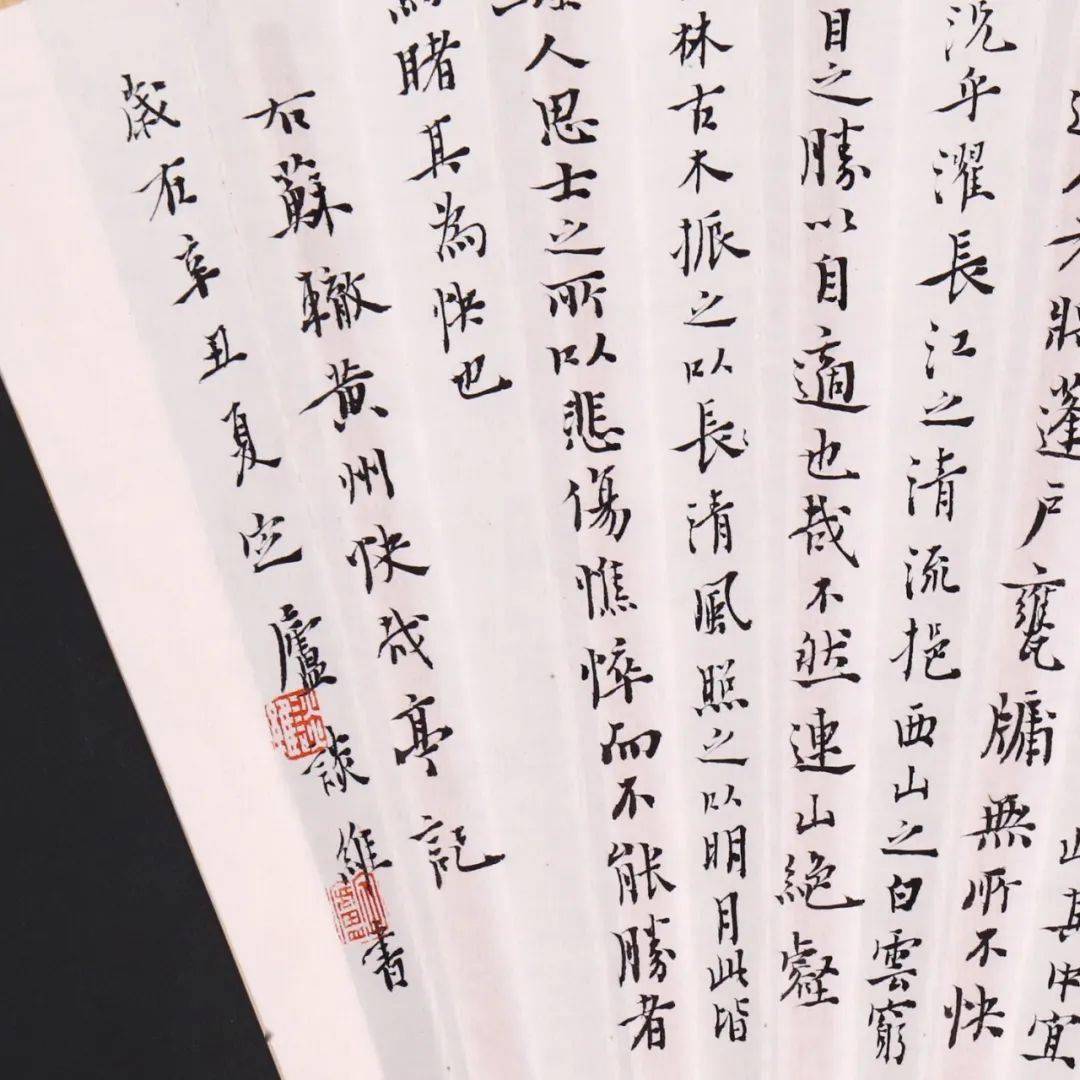 山其中宜
人者將蓬戶甕牖無所不快
況乎濯長江之清流挹西山之白雲窮
目之勝以自適也哉不然連山絕壑
林古木振之以長清風照之以明月此皆
人思士之所以悲傷憔悴而不能勝者
睹其為快也
右蘇轍黃州快哉亭記
歲在辛丑夏定廬談維書